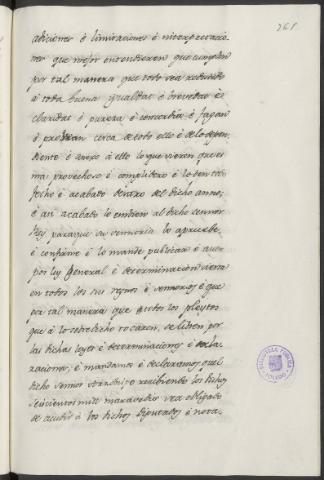 261
adiciones è limitaciones è interpretacio
nes que mejor entendieren que cumplen
por tal manera que todo sea reducido
à toda buena igualdad è brevedad è
claridad è pureza è concordia è fagan
è provean cerca de todo ello è de lo depen
diente è anexo à ello lo que vieren que es
mas provechoso è complidero è lo den todo
fecho è acabado dentro del dicho anno;
è ansi acabado lo embien al dicho sennor
Rey para que su sennoria lo apruebe,
è confirme è lo mande publicar è aver
por ley General è determinacion cierta
en todos los sus regnos è sennorios è que
por tal manera que todos los pleytos
que à lo sobredicho tocaren, se libren por
las dichas leyes è determinaciones è decla
raciones, è mandamos è declaramos quel
dicho sennor Arzobispo recibiendo los dichos
seiscientos mill maravedis sea obligado
de acudir à los dichos Diputados è nota
BIBLIOTECA PUBLICA
TOLEDO